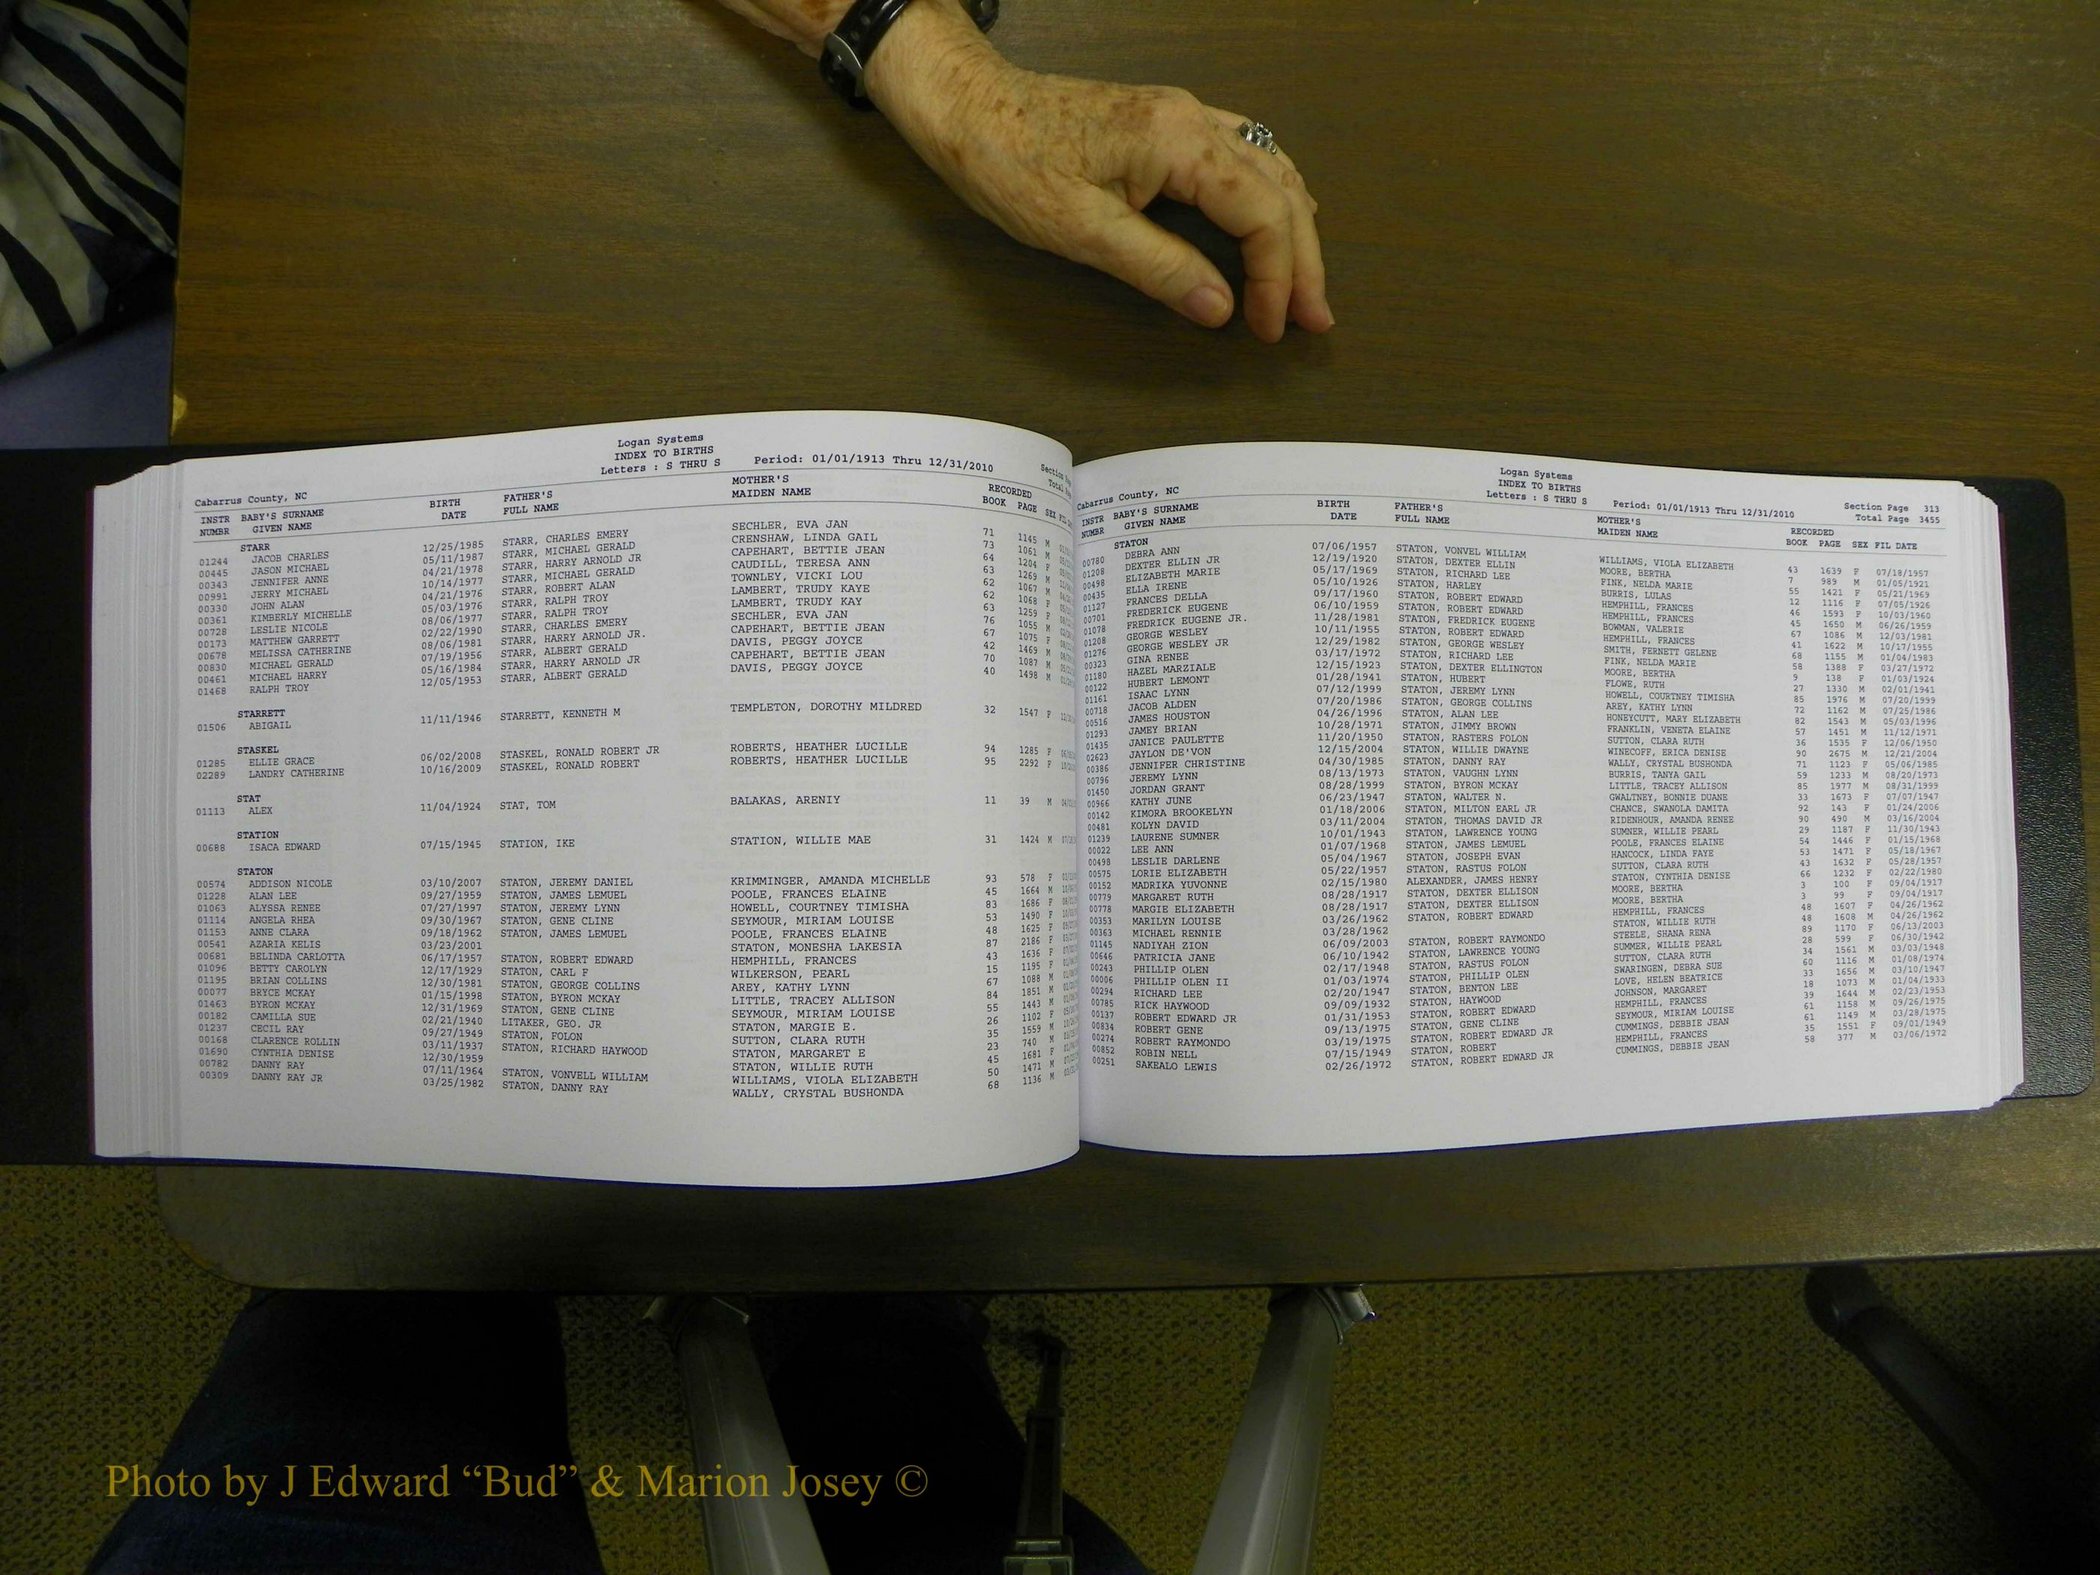 Logan Systems
INDEX TO BIRTHS
Letters : S THRU S Period: 01/01/1913 Thru 12/31/2010
Cabarrus County, NC
INSTR BABY'S SURNAME BIRTH FATHER'S MOTHER'S RECORDED
NUMBR GIVEN NAME DATE FULL NAME MAIDEN NAME BOOK PAGE SEX
STARR
01244 JACOB CHARLES 12/25/1985 STARR, CHARLES EMERY SECHLER, EVA JAN 71 1145 M
00445 JASON MICHAEL 05/11/1987 STARR, MICHAEL GERALD CRENSHAW, LINDA GAIL 73 1061 M
00343 JENNIFER ANNE 04/21/1978 STARR, HARRY ARNOLD JR CAPEHART, BETTIE JEAN 64 1204 F
00991 JERRY MICHAEL 10/14/1977 STARR, MICHAEL GERALD CAUDILL, TERESA ANN 63 1269 M
00330 JOHN ALAN 04/21/1976 STARR, ROBERT ALAN TOWNLEY, VICKI LOU 62 1067 M
00361 KIMBERLY MICHELLE 05/03/1976 STARR, RALPH TROY LAMBERT, TRUDY KAYE 62 1068 F
00728 LESLIE NICOLE 08/06/1977 STARR, RALPH TROY LAMBERT, TRUDY KAY 63 1259 F
00173 MATTHEW GARRETT 02/22/1990 STARR, CHARLES EMERY SECHLER, EVA JAN 76 1055 M
00678 MELISSA CATHERINE 08/06/1981 STARR, HARRY ARNOLD JR. CAPEHART, BETTIE JEAN 67 1075 F
00830 MICHAEL GERALD 07/19/1956 STARR, ALBERT GERALD DAVIS, PEGGY JOYCE 42 1469 M
00461 MICHAEL HARRY 05/16/1984 STARR, HARRY ARNOLD JR CAPEHART, BETTIE JEAN 70 1087 M
01468 RALPH TROY 12/05/1953 STARR, ALBERT GERALD DAVIS, PEGGY JOYCE 40 1498 M
STARRETT
01506 ABIGAIL 11/11/1946 STARRETT, KENNETH M TEMPLETON, DOROTHY MILDRED 32 1547 F
STASKEL
01285 ELLIE GRACE 06/02/2008 STASKEL, RONALD ROBERT JR ROBERTS, HEATHER LUCILLE 94 1285 F
02289 LANDRY CATHERINE 10/16/2009 STASKEL, RONALD ROBERT ROBERTS, HEATHER LUCILLE 95 2292 F
STAT
01113 ALEX 11/04/1924 STAT, TOM BALAKAS, ARENIY 11 39 M
STATION
00688 ISACA EDWARD 07/15/1945 STATION, IKE STATION, WILLIE MAE 31 1424 M
STATON
00574 ADDISON NICOLE 03/10/2007 STATON, JEREMY DANIEL KRIMMINGER, AMANDA MICHELLE 93 578 F
01228 ALAN LEE 09/27/1959 STATON, JAMES LEMUEL POOLE, FRANCES ELAINE 45 1664 M
01063 ALYSSA RENEE 07/27/1997 STATON, JEREMY LYNN HOWELL, COURTNEY TIMISHA 83 1686 F
01114 ANGELA RHEA 09/30/1967 STATON, GENE CLINE SEYMOUR, MIRIAM LOUISE 53 1490 F
01153 ANNE CLARA 09/18/1962 STATON, JAMES LEMUEL POOLE, FRANCES ELAINE 48 1625 F
00541 AZARIA KELIS 03/23/2001 STATON, MONESHA LAKESIA 87 2186 F
00681 BELINDA CARLOTTA 06/17/1957 STATON, ROBERT EDWARD HEMPHILL, FRANCES 43 1636 F
01096 BETTY CAROLYN 12/17/1929 STATON, CARL F WILKERSON, PEARL 15 1195 F
01195 BRIAN COLLINS 12/30/1981 STATON, GEORGE COLLINS AREY, KATHY LYNN 67 1088 M
00077 BRYCE MCKAY 01/15/1998 STATON, BYRON MCKAY LITTLE, TRACEY ALLISON 84 1851 M
01463 BYRON MCKAY 12/31/1969 STATON, GENE CLINE SEYMOUR, MIRIAM LOUISE 55 1443 M
00182 CAMILLA SUE 02/21/1940 LITAKER, GEO. JR STATON, MARGIE E. 26 1102 F
01237 CECIL RAY 09/27/1949 STATON, FOLON SUTTON, CLARA RUTH 35 1559 M
00168 CLARENCE ROLLIN 03/11/1937 STATON, RICHARD HAYWOOD STATON, MARGARET E 23 740 M
01690 CYNTHIA DENISE 12/30/1959 STATON, WILLIE RUTH 45 1681 F
00782 DANNY RAY 07/11/1964 STATON, VONVELL WILLIAM WILLIAMS, VIOLA ELIZABETH 50 1471 M
00309 DANNY RAY JR 03/25/1982 STATON, DANNY RAY WALLY, CRYSTAL BUSHONDA 68 1136 M
Logan Systems
INDEX TO BIRTHS
Letters : S THRU S Period: 01/01/1913 Thru 12/31/2010
Section Page 313
Total Page 3455
Cabarrus County, NC
INSTR BABY'S SURNAME BIRTH FATHER'S MOTHER'S RECORDED
NUMBR GIVEN NAME DATE FULL NAME MAIDEN NAME BOOK PAGE SEX FIL DATE
STATON
00780 DEBRA ANN 07/06/1957 STATON, VONVEL WILLIAM WILLIAMS, VIOLA ELIZABETH 43 1639 F 07/18/1957
01208 DEXTER ELLIN JR 12/19/1920 STATON, DEXTER ELLIN MOORE, BERTHA 7 989 M 01/05/1921
00498 ELIZABETH MARIE 05/17/1969 STATON, RICHARD LEE FINK, NELDA MARIE 55 1421 F 05/21/1969
00435 ELLA IRENE 05/10/1926 STATON, HARLEY BURRIS, LULAS 12 1116 F 07/05/1926
01127 FRANCES DELLA 09/17/1960 STATON, ROBERT EDWARD HEMPHILL, FRANCES 46 1593 F 10/03/1960
00701 FREDERICK EUGENE 06/10/1959 STATON, ROBERT EDWARD HEMPHILL, FRANCES 45 1650 M 06/26/1959
01078 FREDRICK EUGENE JR. 11/28/1981 STATON, FREDRICK EUGENE BOWMAN, VALERIE 67 1086 M 12/03/1981
01208 GEORGE WESLEY 10/11/1955 STATON, ROBERT EDWARD HEMPHILL, FRANCES 41 1622 M 10/17/1955
01276 GEORGE WESLEY JR 12/29/1982 STATON, GEORGE WESLEY SMITH, FERNETT GELENE 68 1155 M 01/04/1983
00323 GINA RENEE 03/17/1972 STATON, RICHARD LEE FINK, NELDA MARIE 58 1388 F 03/27/1972
01180 HAZEL MARZIALE 12/15/1923 STATON, DEXTER ELLINGTON MOORE, BERTHA 9 138 F 01/03/1924
00122 HUBERT LEMONT 01/28/1941 STATON, HUBERT FLOWE, RUTH 27 1330 M 02/01/1941
01161 ISAAC LYNN 07/12/1999 STATON, JEREMY LYNN HOWELL, COURTNEY TIMISHA 85 1976 M 07/20/1999
00718 JACOB ALDEN 07/20/1986 STATON, GEORGE COLLINS AREY, KATHY LYNN 72 1162 M 07/25/1986
00516 JAMES HOUSTON 04/26/1996 STATON, ALAN LEE HONEYCUTT, MARY ELIZABETH 82 1543 M 05/03/1996
01293 JAMEY BRIAN 10/28/1971 STATON, JIMMY BROWN FRANKLIN, VENETA ELAINE 57 1451 M 11/12/1971
01435 JANICE PAULETTE 11/20/1950 STATON, RASTERS FOLON SUTTON, CLARA RUTH 36 1535 F 12/06/1950
02623 JAYLON DE'VON 12/15/2004 STATON, WILLIE DWAYNE WINECOFF, ERICA DENISE 90 2675 M 12/21/2004
00386 JENNIFER CHRISTINE 04/30/1985 STATON, DANNY RAY WALLY, CRYSTAL BUSHONDA 71 1123 F 05/06/1985
00796 JEREMY LYNN 08/13/1973 STATON, VAUGHN LYNN BURRIS, TANYA GAIL 59 1233 M 08/20/1973
01450 JORDAN GRANT 08/28/1999 STATON, BYRON MCKAY LITTLE, TRACEY ALLISON 85 1977 M 08/31/1999
00966 KATHY JUNE 06/23/1947 STATON, WALTER N. GWALTNEY, BONNIE DUANE 33 1673 F 07/07/1947
00142 KIMORA BROOKELYN 01/18/2006 STATON, MILTON EARL JR CHANCE, SWANOLA DAMITA 92 143 F 01/24/2006
00481 KOLYN DAVID 03/11/2004 STATON, THOMAS DAVID JR RIDENHOUR, AMANDA RENEE 90 490 M 03/16/2004
01239 LAURENE SUMNER 10/01/1943 STATON, LAWRENCE YOUNG SUMNER, WILLIE PEARL 29 1187 F 11/30/1943
00022 LEE ANN 01/07/1968 STATON, JAMES LEMUEL POOLE, FRANCES ELAINE 54 1446 F 01/15/1968
00498 LESLIE DARLENE 05/04/1967 STATON, JOSEPH EVAN HANCOCK, LINDA FAYE 53 1471 F 05/18/1967
00575 LORIE ELIZABETH 05/22/1957 STATON, RASTUS FOLON SUTTON, CLARA RUTH 43 1632 F 05/28/1957
00152 MADRIKA YUVONNE 02/15/1980 ALEXANDER, JAMES HENRY STATON, CYNTHIA DENISE 66 1232 F 02/22/1980
00779 MARGARET RUTH 08/28/1917 STATON, DEXTER ELLISON MOORE, BERTHA 3 100 F 09/04/1917
00778 MARGIE ELIZABETH 08/28/1917 STATON, DEXTER ELLISON MOORE, BERTHA 3 99 F 09/04/1917
00353 MARILYN LOUISE 03/26/1962 STATON, ROBERT EDWARD HEMPHILL, FRANCES 48 1607 F 04/26/1962
00363 MICHAEL RENNIE 03/28/1962 STATON, WILLIE RUTH 48 1608 M 04/26/1962
01145 NADIYAH ZION 06/09/2003 STATON, ROBERT RAYMONDO STEELE, SHANA RENA 89 1170 F 06/13/2003
00646 PATRICIA JANE 06/10/1942 STATON, LAWRENCE YOUNG SUMMER, WILLIE PEARL 28 599 F 06/30/1942
00243 PHILLIP OLEN 02/17/1948 STATON, RASTUS FOLON SUTTON, CLARA RUTH 34 1561 M 03/03/1948
00006 PHILLIP OLEN II 01/03/1974 STATON, PHILLIP OLEN SWARINGEN, DEBRA SUE 60 1116 M 01/08/1974
00294 RICHARD LEE 02/20/1947 STATON, BENTON LEE LOVE, HELEN BEATRICE 33 1656 M 03/10/1947
00785 RICK HAYWOOD 09/09/1932 STATON, HAYWOOD JOHNSON, MARGARET 18 1073 M 01/04/1933
00137 ROBERT EDWARD JR 01/31/1953 STATON, ROBERT EDWARD HEMPHILL, FRANCES 39 1644 M 02/23/1953
00834 ROBERT GENE 09/13/1975 STATON, GENE CLINE SEYMOUR, MIRIAM LOUISE 61 1158 M 09/26/1975
00274 ROBERT RAYMONDO 03/19/1975 STATON, ROBERT EDWARD JR CUMMINGS, DEBBIE JEAN 61 1149 M 03/28/1975
00852 ROBIN NELL 07/15/1949 STATON, ROBERT HEMPHILL, FRANCES 35 1551 F 09/01/1949
00251 SAKEALO LEWIS 02/26/1972 STATON, ROBERT EDWARD JR CUMMINGS, DEBBIE JEAN 58 377 M 03/06/1972
Photo by J Edward “Bud” & Marion Josey ©